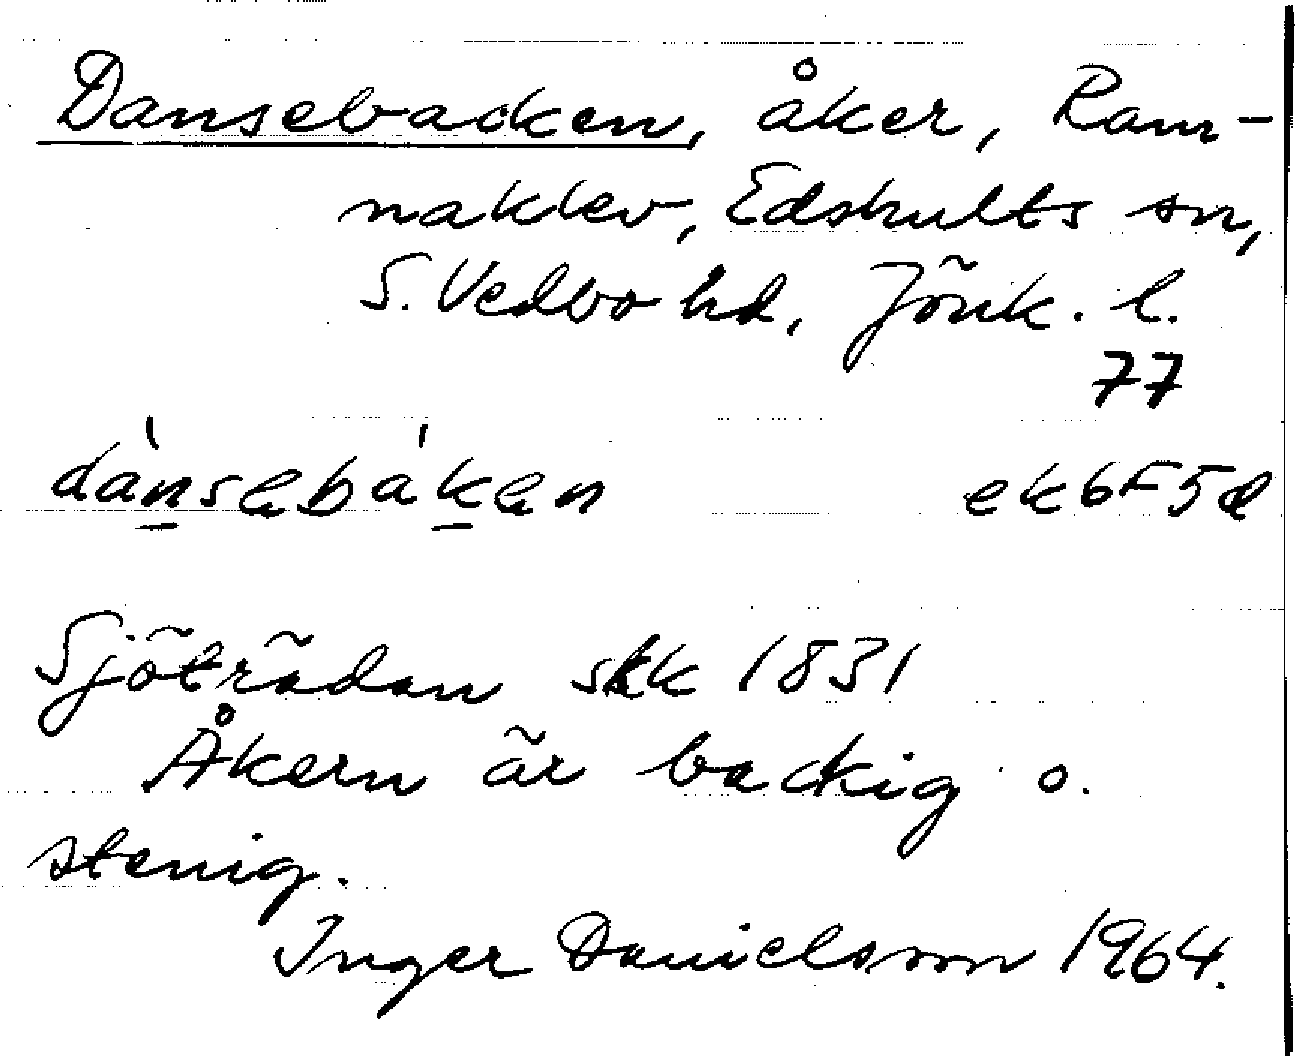 Dansebacken, åker, Ram-
naklev, Edshults sn,
S. Vedbo hd, Jönk. l.
77
dànsebáken ek6F5d
Sjöträdan skk 1831
Åkern är backig o.
stenig.
Inger Danielsson 1964.